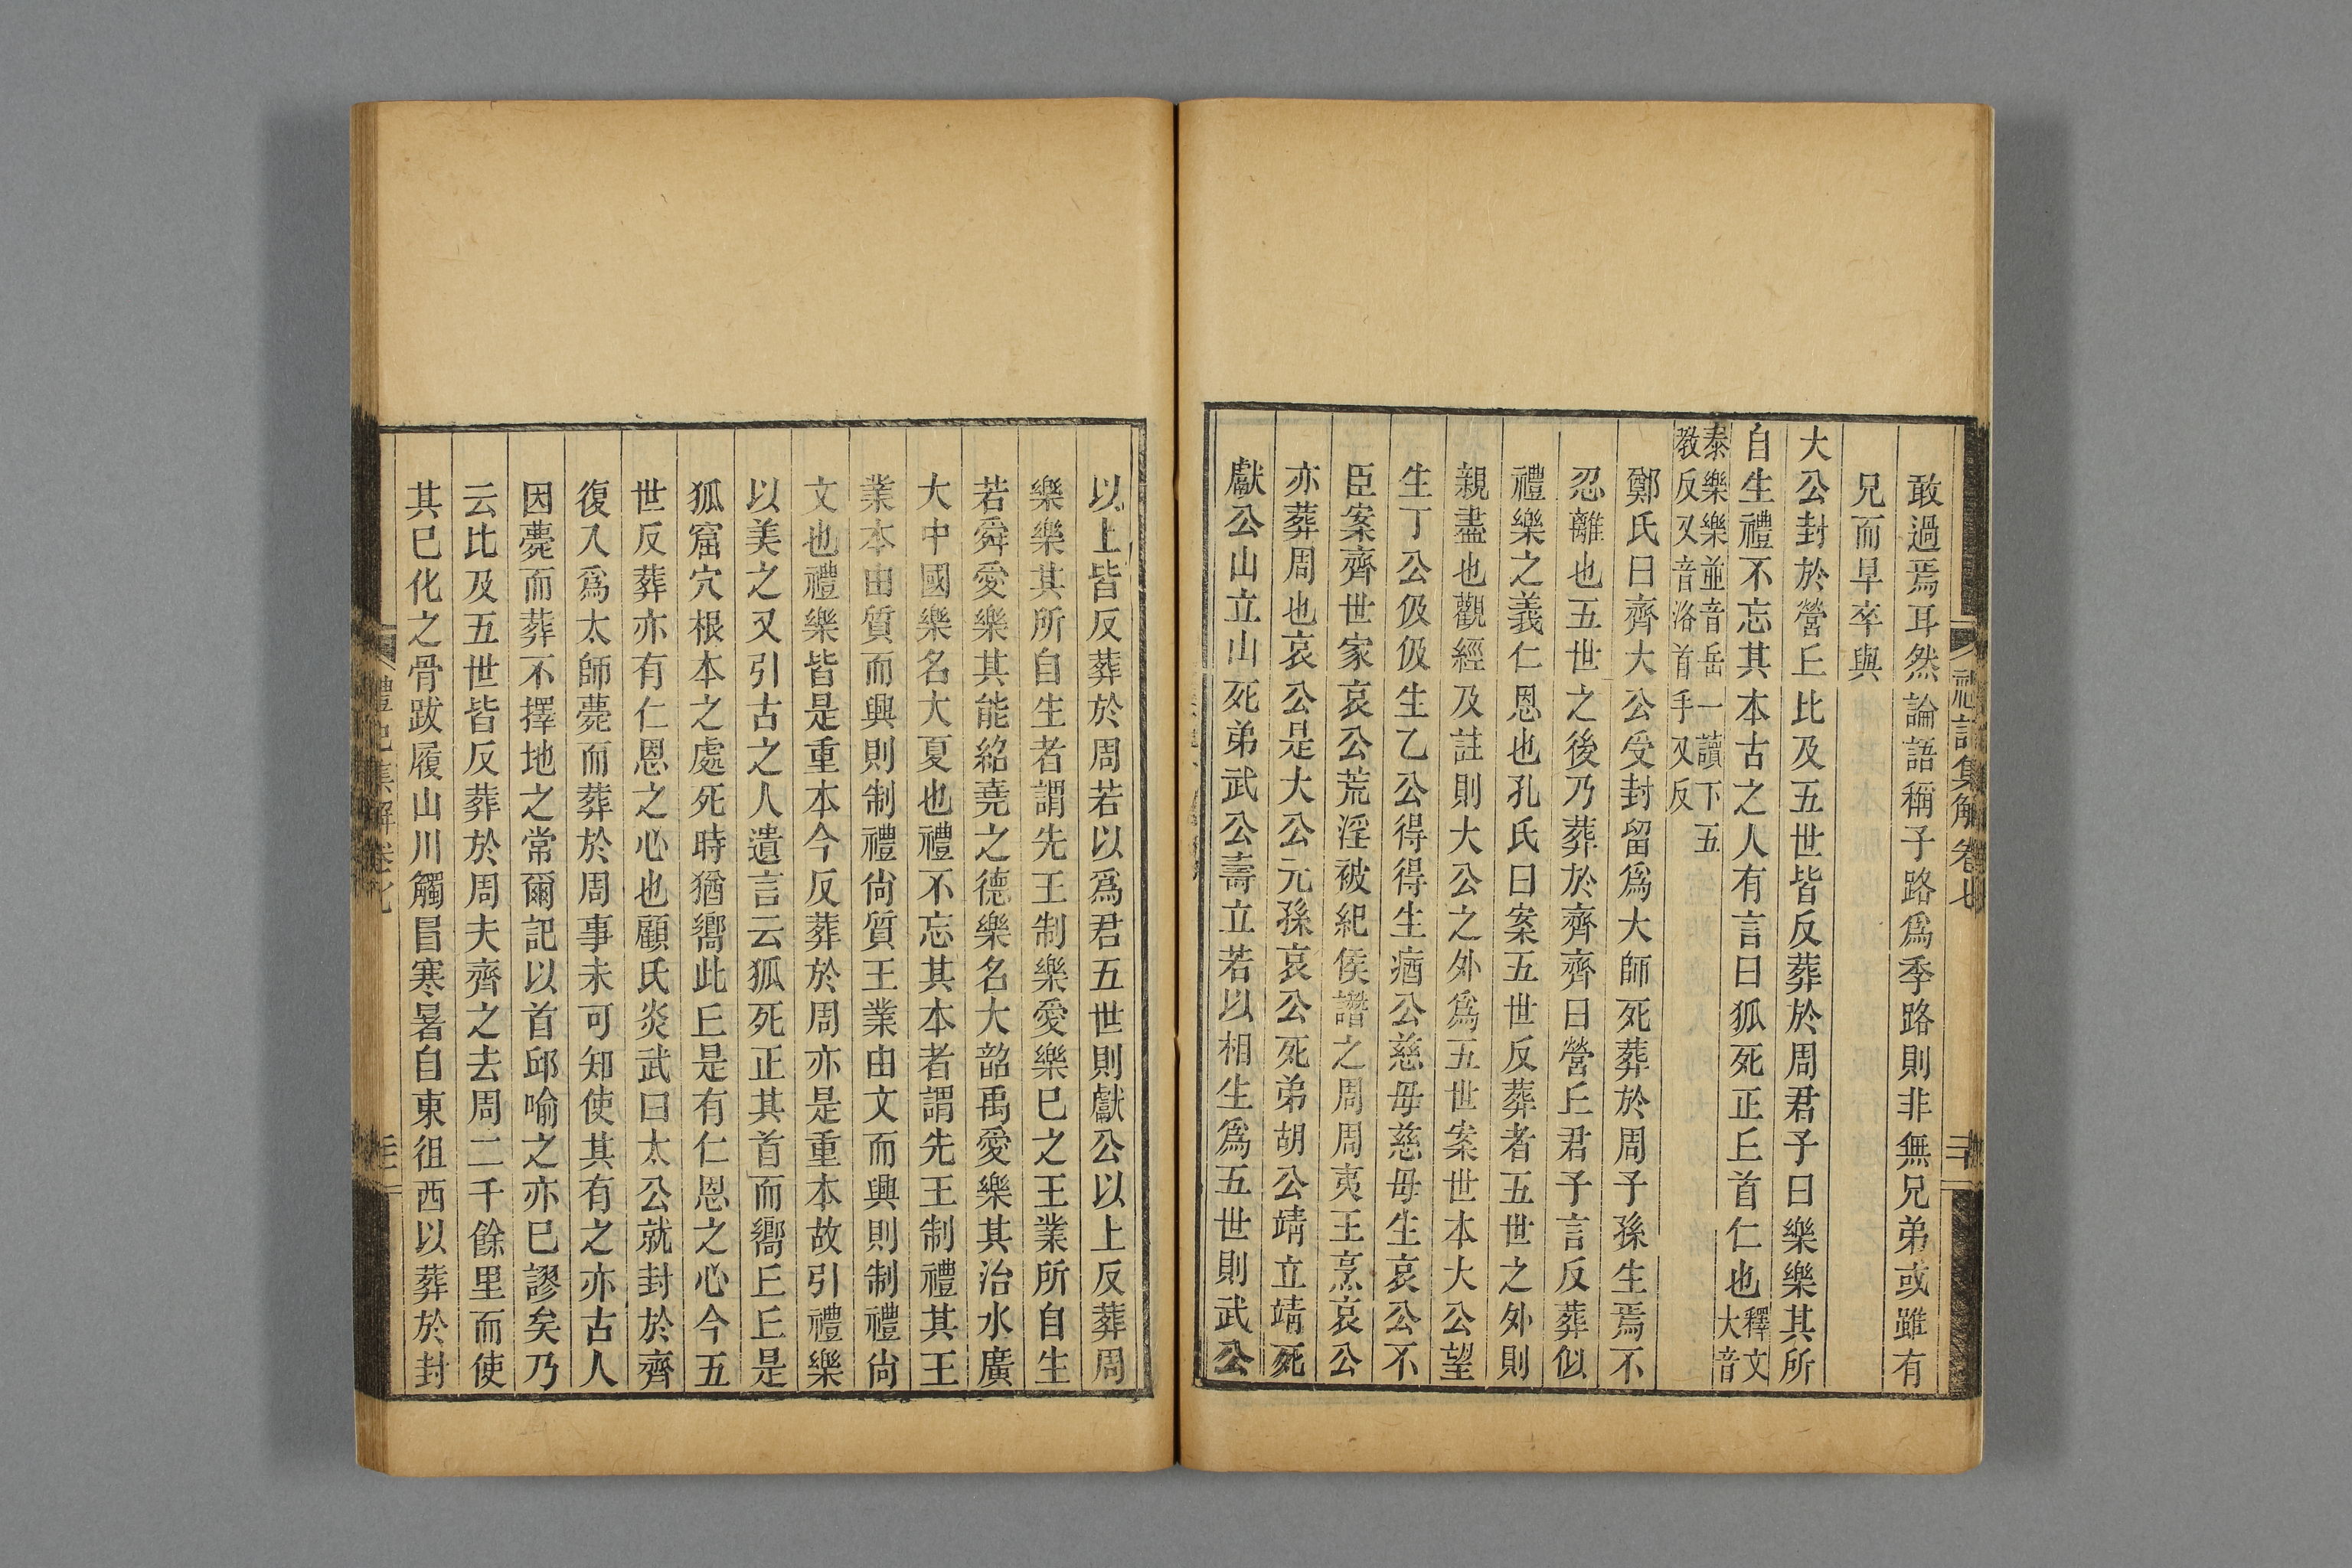 禮記集解卷七
敢過焉耳然論語稱子路爲季路則非無兄弟或雖有
兄而早卒與
大公封於營丘比及五世皆反葬於周君子曰樂樂其所
自生禮不忘其本古之人有言曰狐死正丘首仁也釋文大音
泰樂樂並音岳一讀下五
教反又音洛首手又反
鄭氏曰齊大公受封留爲大師死葬於周子孫生焉不
忍離也五世之後乃葬於齊齊曰營丘君子言反葬似
禮樂之義仁恩也孔氏曰案五世反葬者五世之外則
親盡也觀經及註則大公之外爲五世案世本大公望
生丁公伋伋生乙公得得生㾞公慈毋慈毋生哀公不
臣案齊世家哀公荒淫被紀侯譖之周周夷王烹哀公
亦葬周也哀公是大公元孫哀公死弟胡公靖立靖死
獻公山立山死弟武公壽立若以相生爲五世則武公
以上皆反葬於周若以爲君五世則獻公以上反葬周
樂樂其所自生者謂先王制樂愛樂已之王業所自生
若舜愛樂其能紹堯之德樂名大韶禹愛樂其治水廣
大中國樂名大夏也禮不忘其本者謂先王制禮其王
業本由質而興則制禮尙質王業由文而興則制禮尙
文也禮樂皆是重本今反葬於周亦是重本故引禮樂
以美之又引古之人遺言云狐死正其首而嚮丘丘是
狐窟穴根本之處死時猶嚮此丘是有仁恩之心今五
世反葬亦有仁恩之心也顧氏炎武曰太公就封於齊
復入爲太師薨而葬於周事未可知使其有之亦古人
因薨而葬不擇地之常爾記以首邱喻之亦已謬矣乃
云比及五世皆反葬於周夫齊之去周二千餘里而使
其已化之骨跋履山川觸冒寒暑自東徂西以葬於封
禮記集解卷七